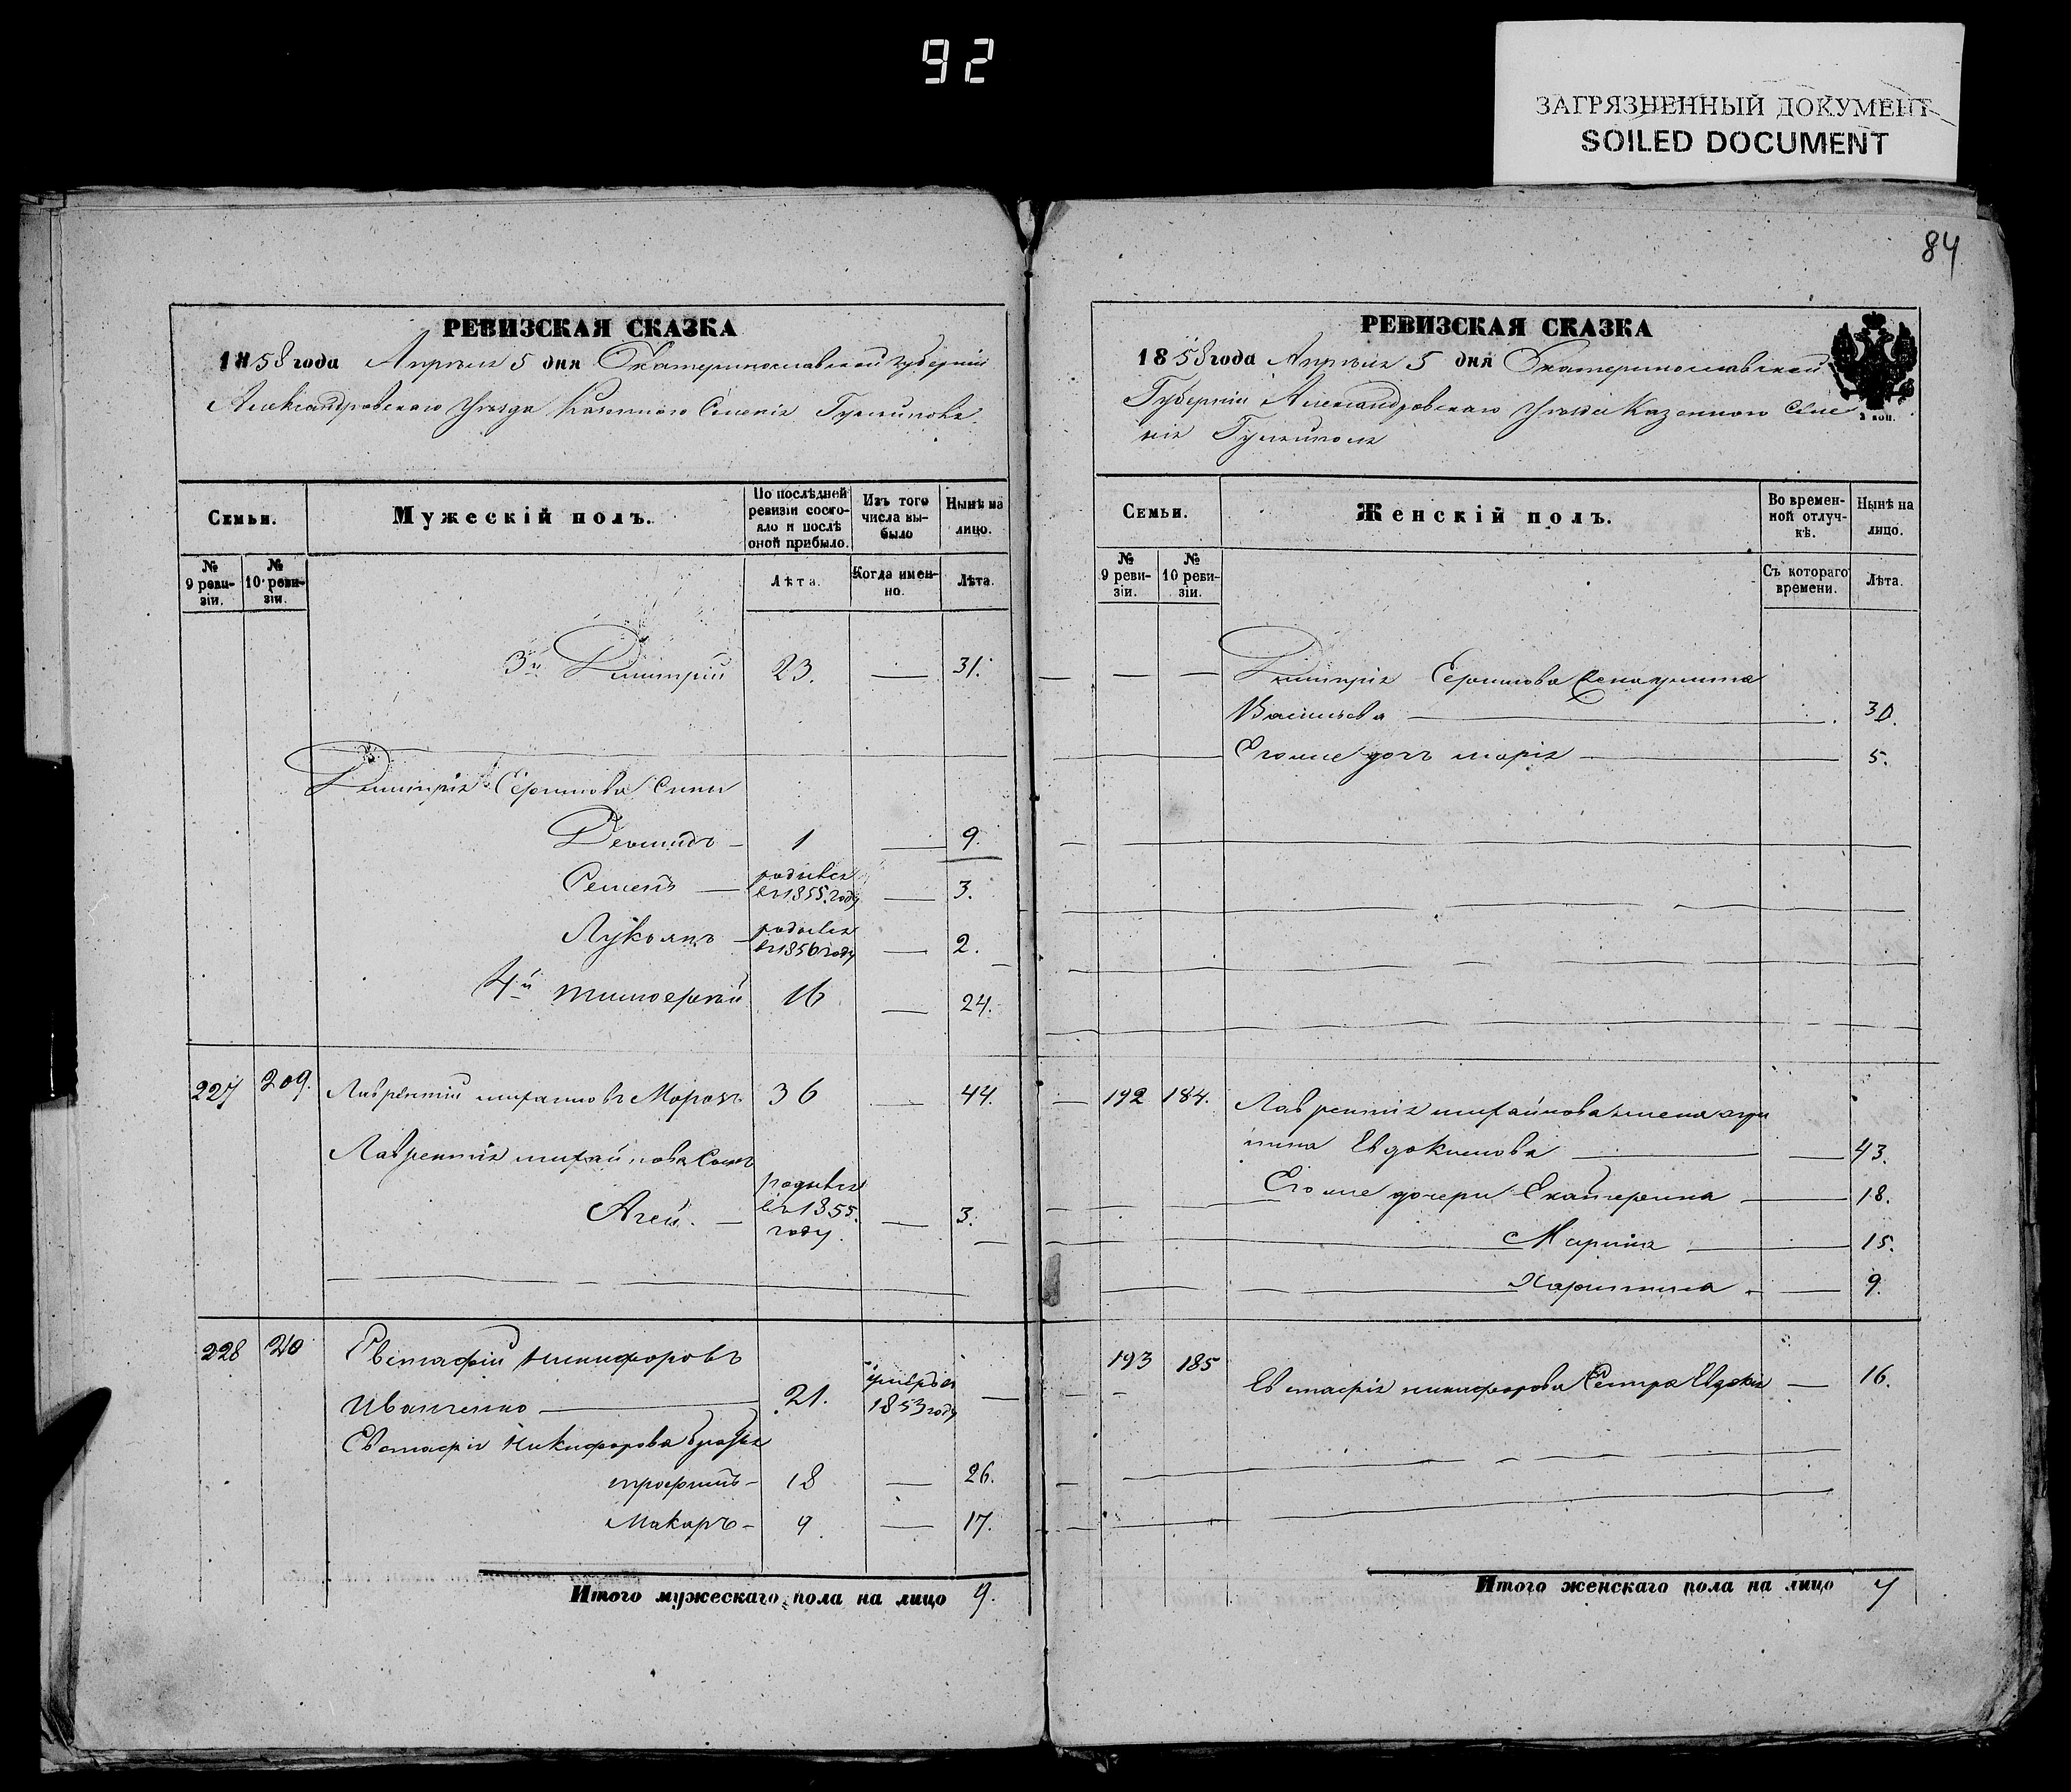 92
ЗАГРЯЗНЕННЫЙ ДОКУМЕНТ
SOILED DOCUMENT
РЕВИЗСКАЯ СКАЗКА
1858 года Апреля 5 дня Екатеринославской губернии
Александровскаго Уезда Казенного Селения Гуляйполя
Семьи.
Мужескій полъ.
По послѣдней
ревизіи состо-
яло и послѣ
оной прибыло.
Изъ того
числа вы-
было
Нынѣ на
лицо.
№
9 реви-
зіи.
№
10 реви-
зіи.
Лѣта.
Когда имен-
но.
Лѣта.
3й Дмитрий 23. — 31.
Дмитрия Ефимова сыны
Демидъ — 1 — 9.
Семенъ — родился
въ 1855 году — 3.
Лукьянъ — родился
въ 1856 году — 2.
4й Тимофей 16 — 24.
227 209. Лаврентий Михайловъ Морозъ 36 — 44.
Лаврентия Михайлова сынъ
Агей. — родился
въ 1855
году. — 3.
228 210 Евстафий Никифоровъ
Иванченко — 21. 1853 году —
Евстафия Никифорова братья
Трофимъ — 18 — 26.
Макаръ — 9 — 17.
Итого мужескаго пола на лицо 9.
84
РЕВИЗСКАЯ СКАЗКА
1858 года Апреля 5 дня Екатеринославской
Губернии Александровскаго Уезда Казенного Селе
ния Гуляйполя
2 коп.
Семьи.
Женскій полъ.
Во времен-
ной отлуч-
кѣ.
Нынѣ на
лицо.
№
9 реви-
зіи.
№
10 реви-
зіи.
Съ котораго
времени.
Лѣта.
Дмитрия Ефимова жена
Васильева — 30.
Его же дочь Мария — 5.
192 184. Лаврентия Михайлова жена
Евдокимова — 43.
Его же дочери Екатерина — 18.
Марина — 15.
Харитина — 9.
193 185 Евстафия Никифорова сестра — 16.
Итого женскаго пола на лицо 7